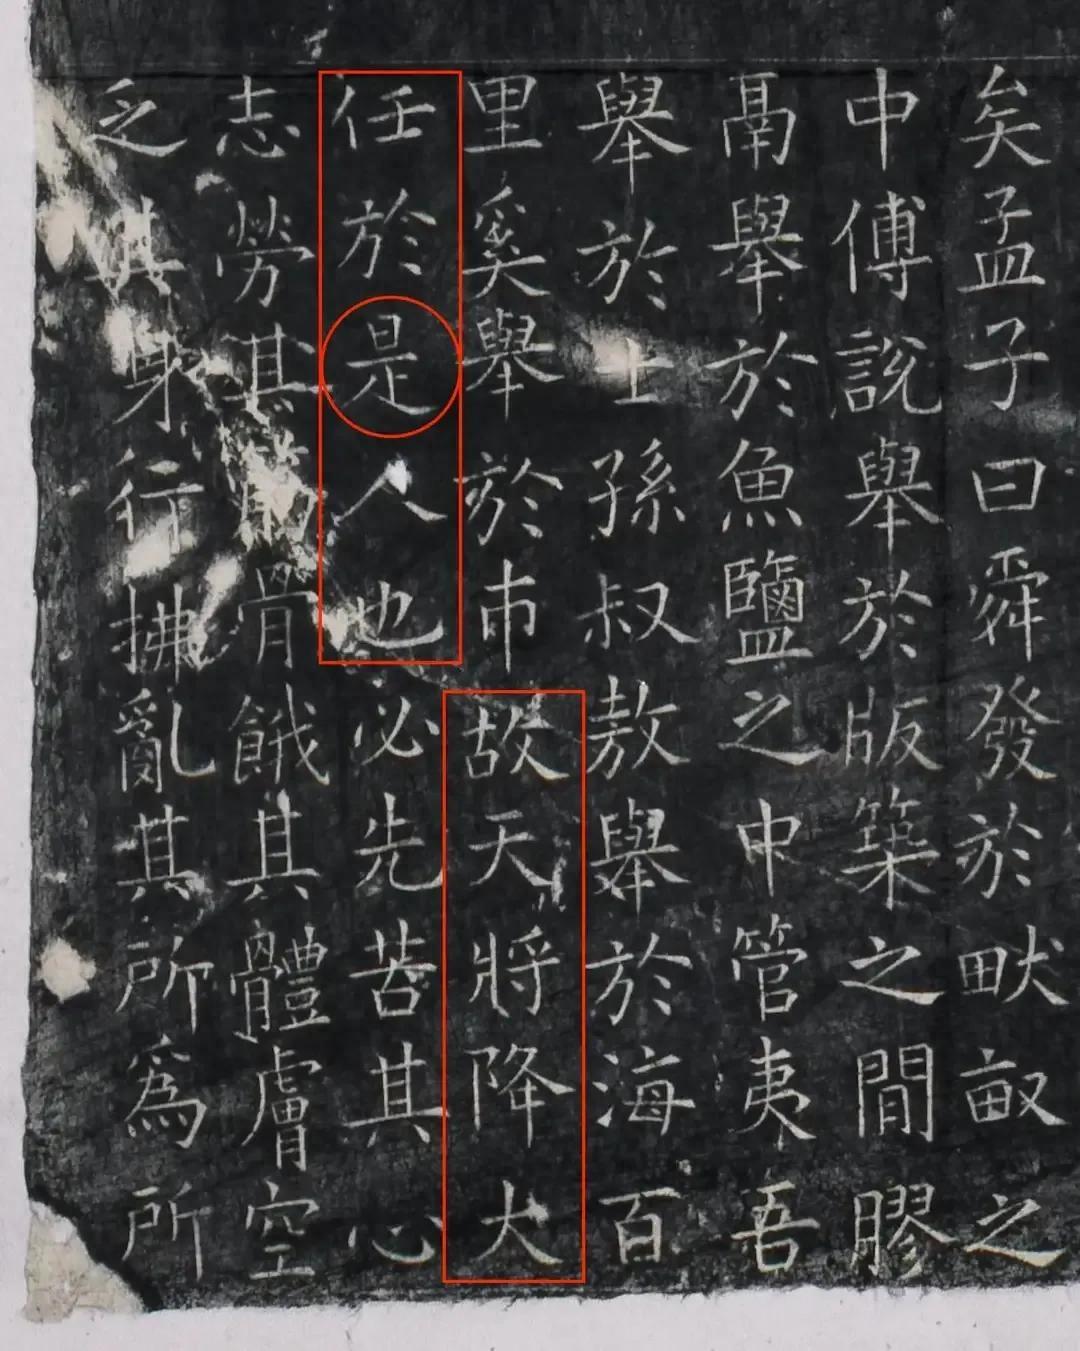 矣孟子曰舜發於畎畝之
中傅說舉於版築之間膠
鬲舉於魚鹽之中管夷吾
舉於士孫叔敖舉於海百
里奚舉於市故天將降大
任於是人也必先苦其心
志勞其筋骨餓其體膚空
乏其身行拂亂其所爲所